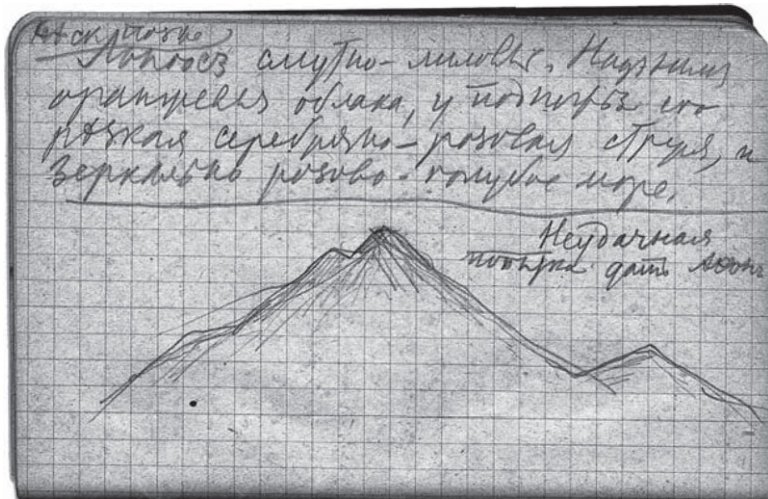 позже
смутно-лиловый. Над ним
оранжевыя облака, у подножья его
рѣзкая серебряно-розовая струя, и
зеркально розово-голубое море.
Неудачная
попытка дать